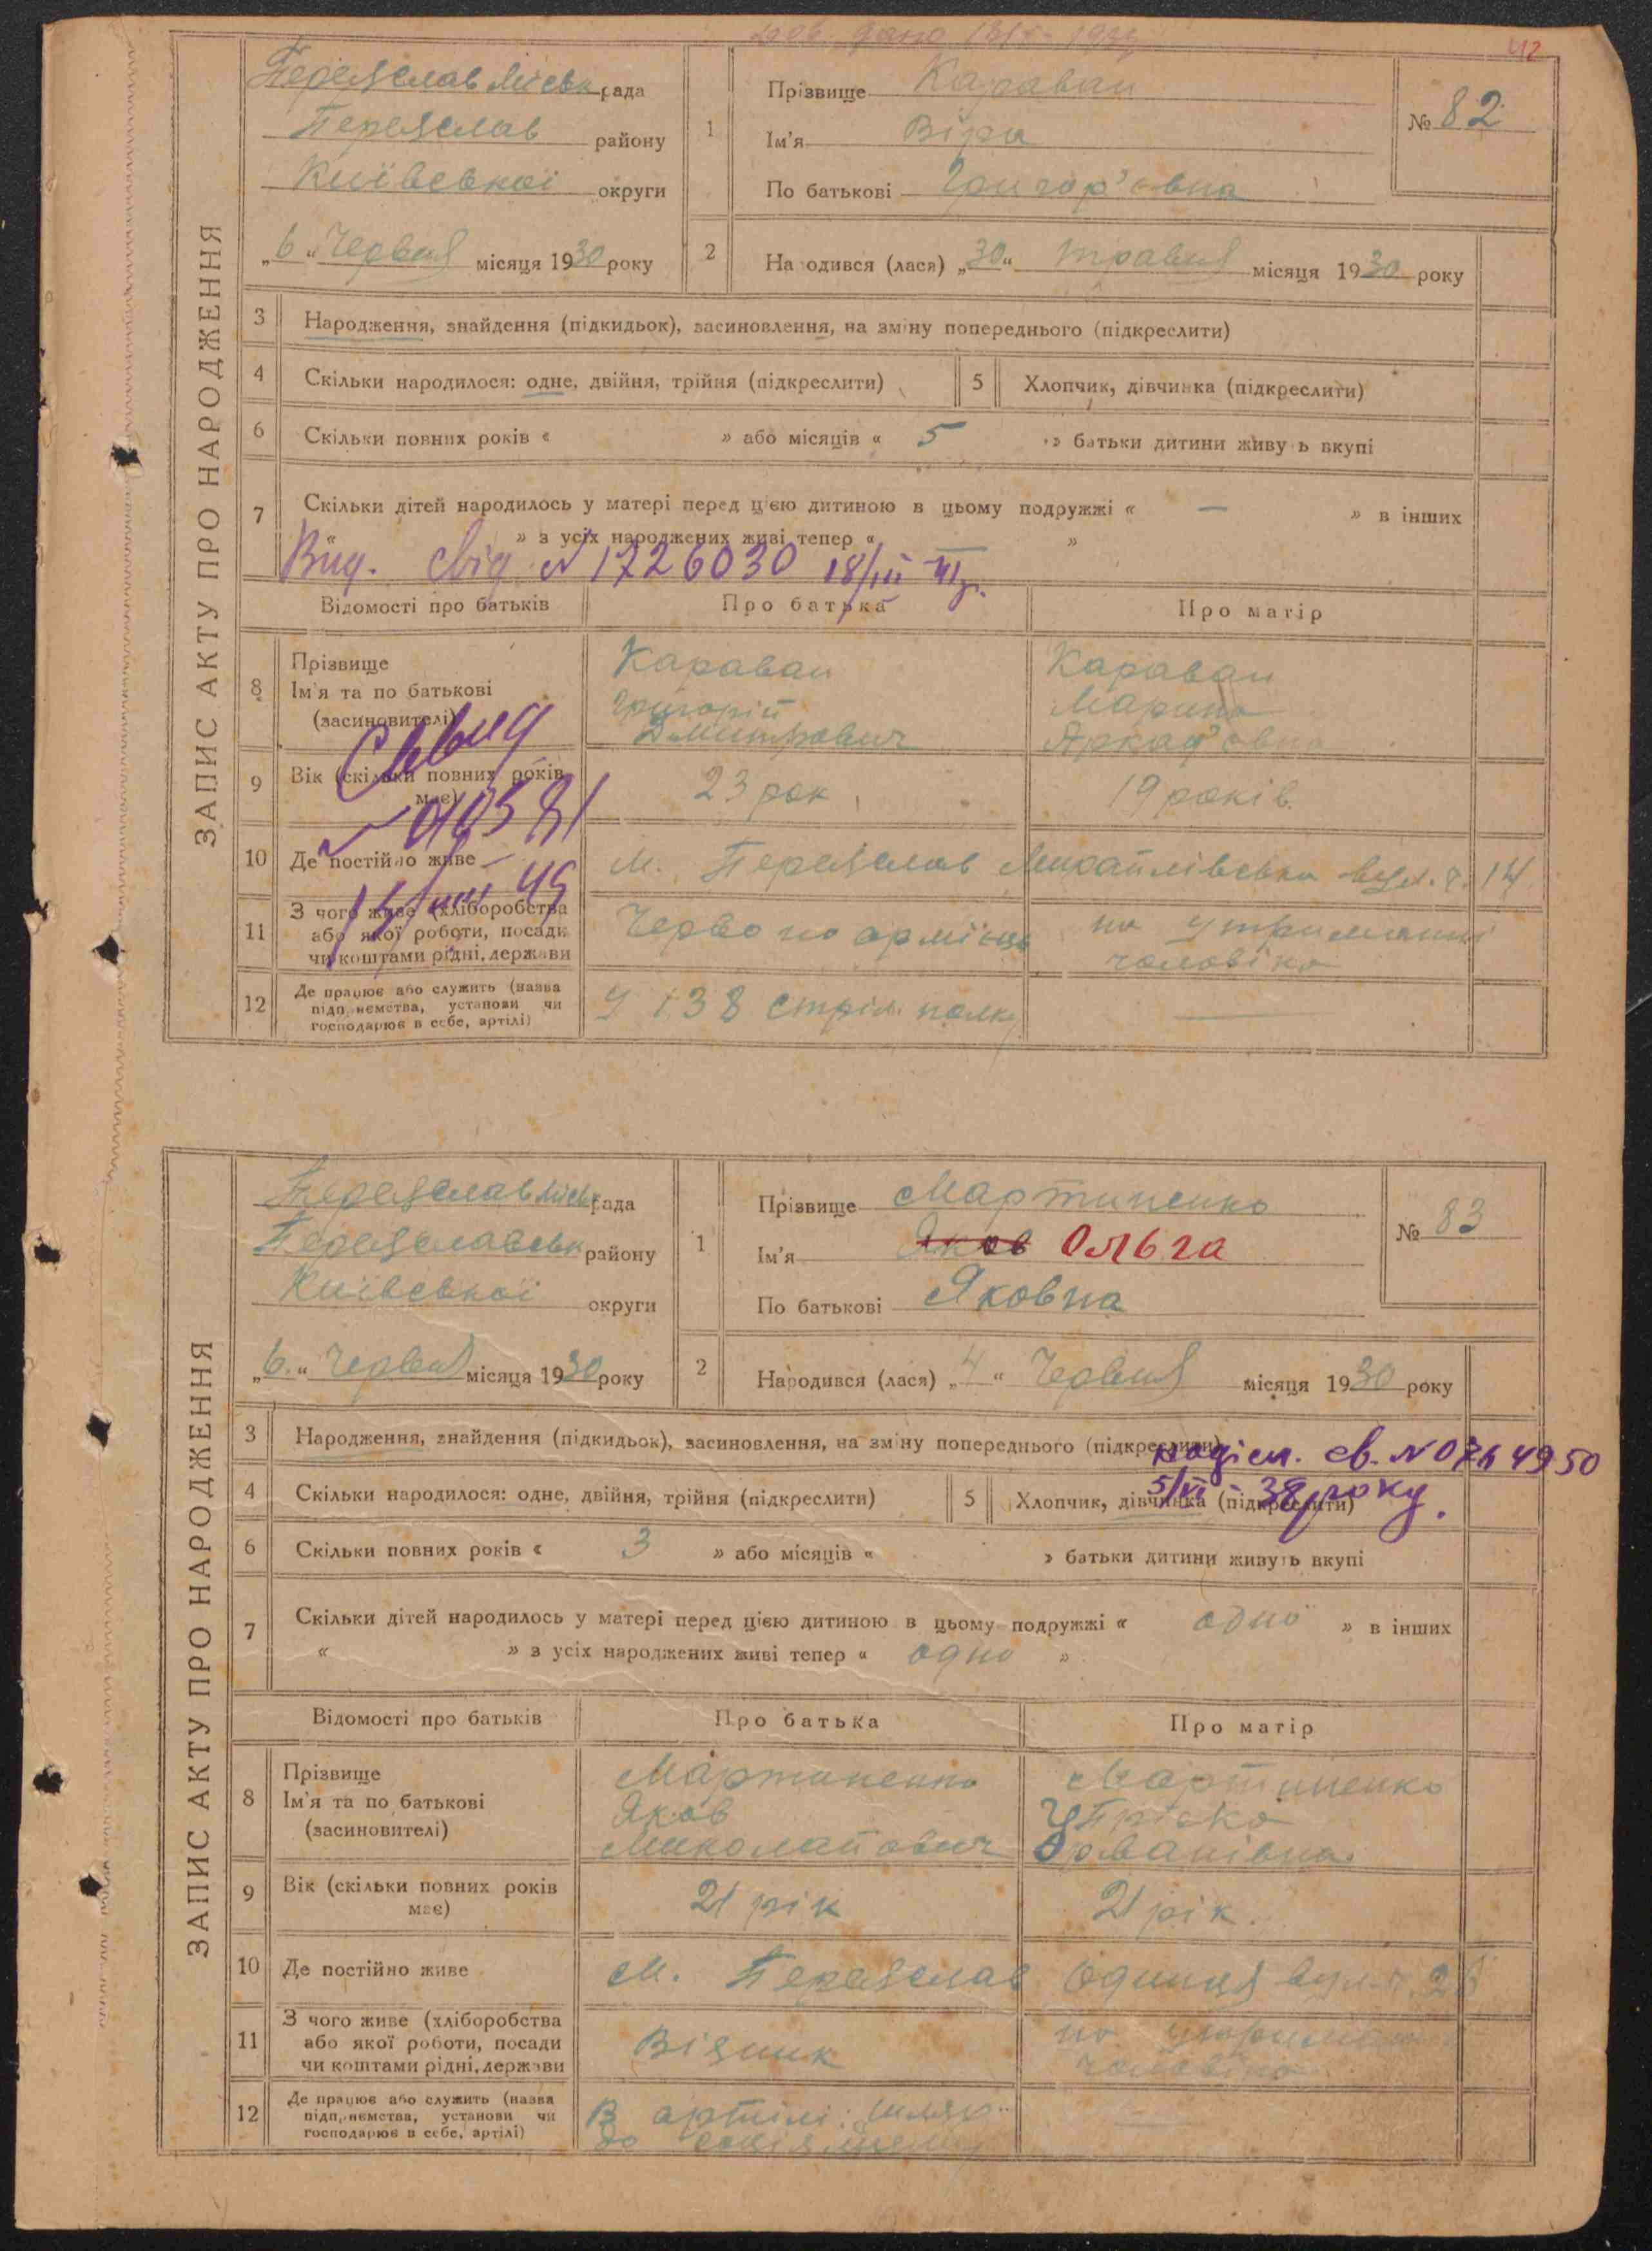 42
ЗАПИС АКТУ ПРО НАРОДЖЕННЯ
Переяслав міськ рада
Переяслав району
Київської округи
„6“ Червня місяця 1930 року
1
Прізвище Караван
Ім'я Віра
По батькові Григор'євна
№ 82
2
На одився (лася) „30“ травня місяця 1930 року
3 Народження, знайдення (підкидьок), засиновлення, на зміну попереднього (підкреслити)
4 Скільки народилося: одне, двійня, трійня (підкреслити)
5 Хлопчик, дівчинка (підкреслити)
6 Скільки повних років « » або місяців « 5 » батьки дитини живуть вкупі
7 Скільки дітей народилось у матері перед цією дитиною в цьому подружжі « — » в інших
» з усіх народжених живі тепер « — »
Вид. свід № 1726030 18/III 41р.
Відомості про батьків Про батька Про матір
8 Прізвище
Ім'я та по батькові
(засиновителі)
Караван
Григорій
Дмитрович
Караван
Марина
Аркад'євна
9 Вік (скільки повних років
має)
23 рок
19 років.
10 Де постійно живе
м. Переяслав Михайлівська вул. ч. 14
11 З чого живе (хліборобства
або якої роботи, посади
чи коштами рідні, держави
Червоноармієць
на утриманні
чоловіка
12 Де працює або служить (назва
підприємства, установи чи
господарює в себе, артілі)
У 138 стріл. полку
—
ЗАПИС АКТУ ПРО НАРОДЖЕННЯ
Переяслав міськ рада
Переяславськ району
Київської округи
„6.“ Червня місяця 1930 року
1
Прізвище Мартиненко
Ім'я Яков Ольга
По батькові Яковна
№ 83
2
Народився (лася) „4“ Червня місяця 1930 року
3 Народження, знайдення (підкидьок), засиновлення, на зміну попереднього (підкреслити)
4 Скільки народилося: одне, двійня, трійня (підкреслити)
5 Хлопчик, дівчинка (підкреслити)
5/VI 38 року.
6 Скільки повних років « 3 » або місяців « » батьки дитини живуть вкупі
7 Скільки дітей народилось у матері перед цією дитиною в цьому подружжі « одно » в інших
« » з усіх народжених живі тепер « одно »
Відомості про батьків Про батька Про матір
8 Прізвище
Ім'я та по батькові
(засиновителі)
Мартиненко
Яков
Миколайович
Мартиненко
9 Вік (скільки повних років
має)
21 рік
21 рік.
10 Де постійно живе
м. Переяслав
11 З чого живе (хліборобства
або якої роботи, посади
чи коштами рідні, держави
Візник
на утриманні
чоловіка
12 Де працює або служить (назва
підприємства, установи чи
господарює в себе, артілі)
В артілі: шлях
до соціялізму